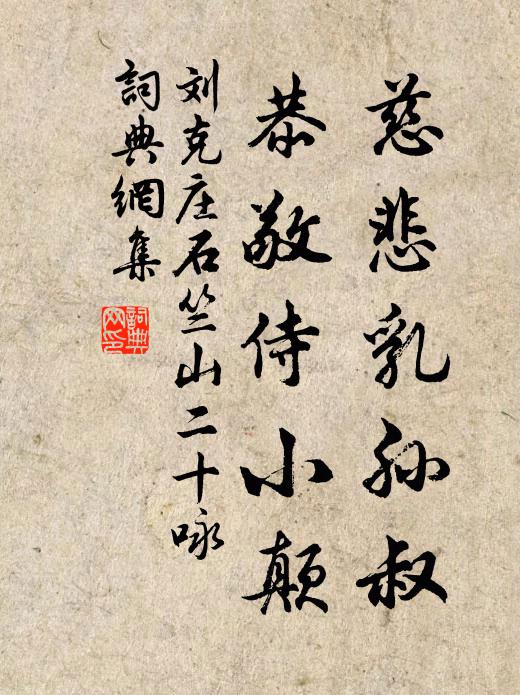 慈悲乳孙叔
恭敬侍小颠
刘克庄石竺山二十咏
詞典網集
詞典網印